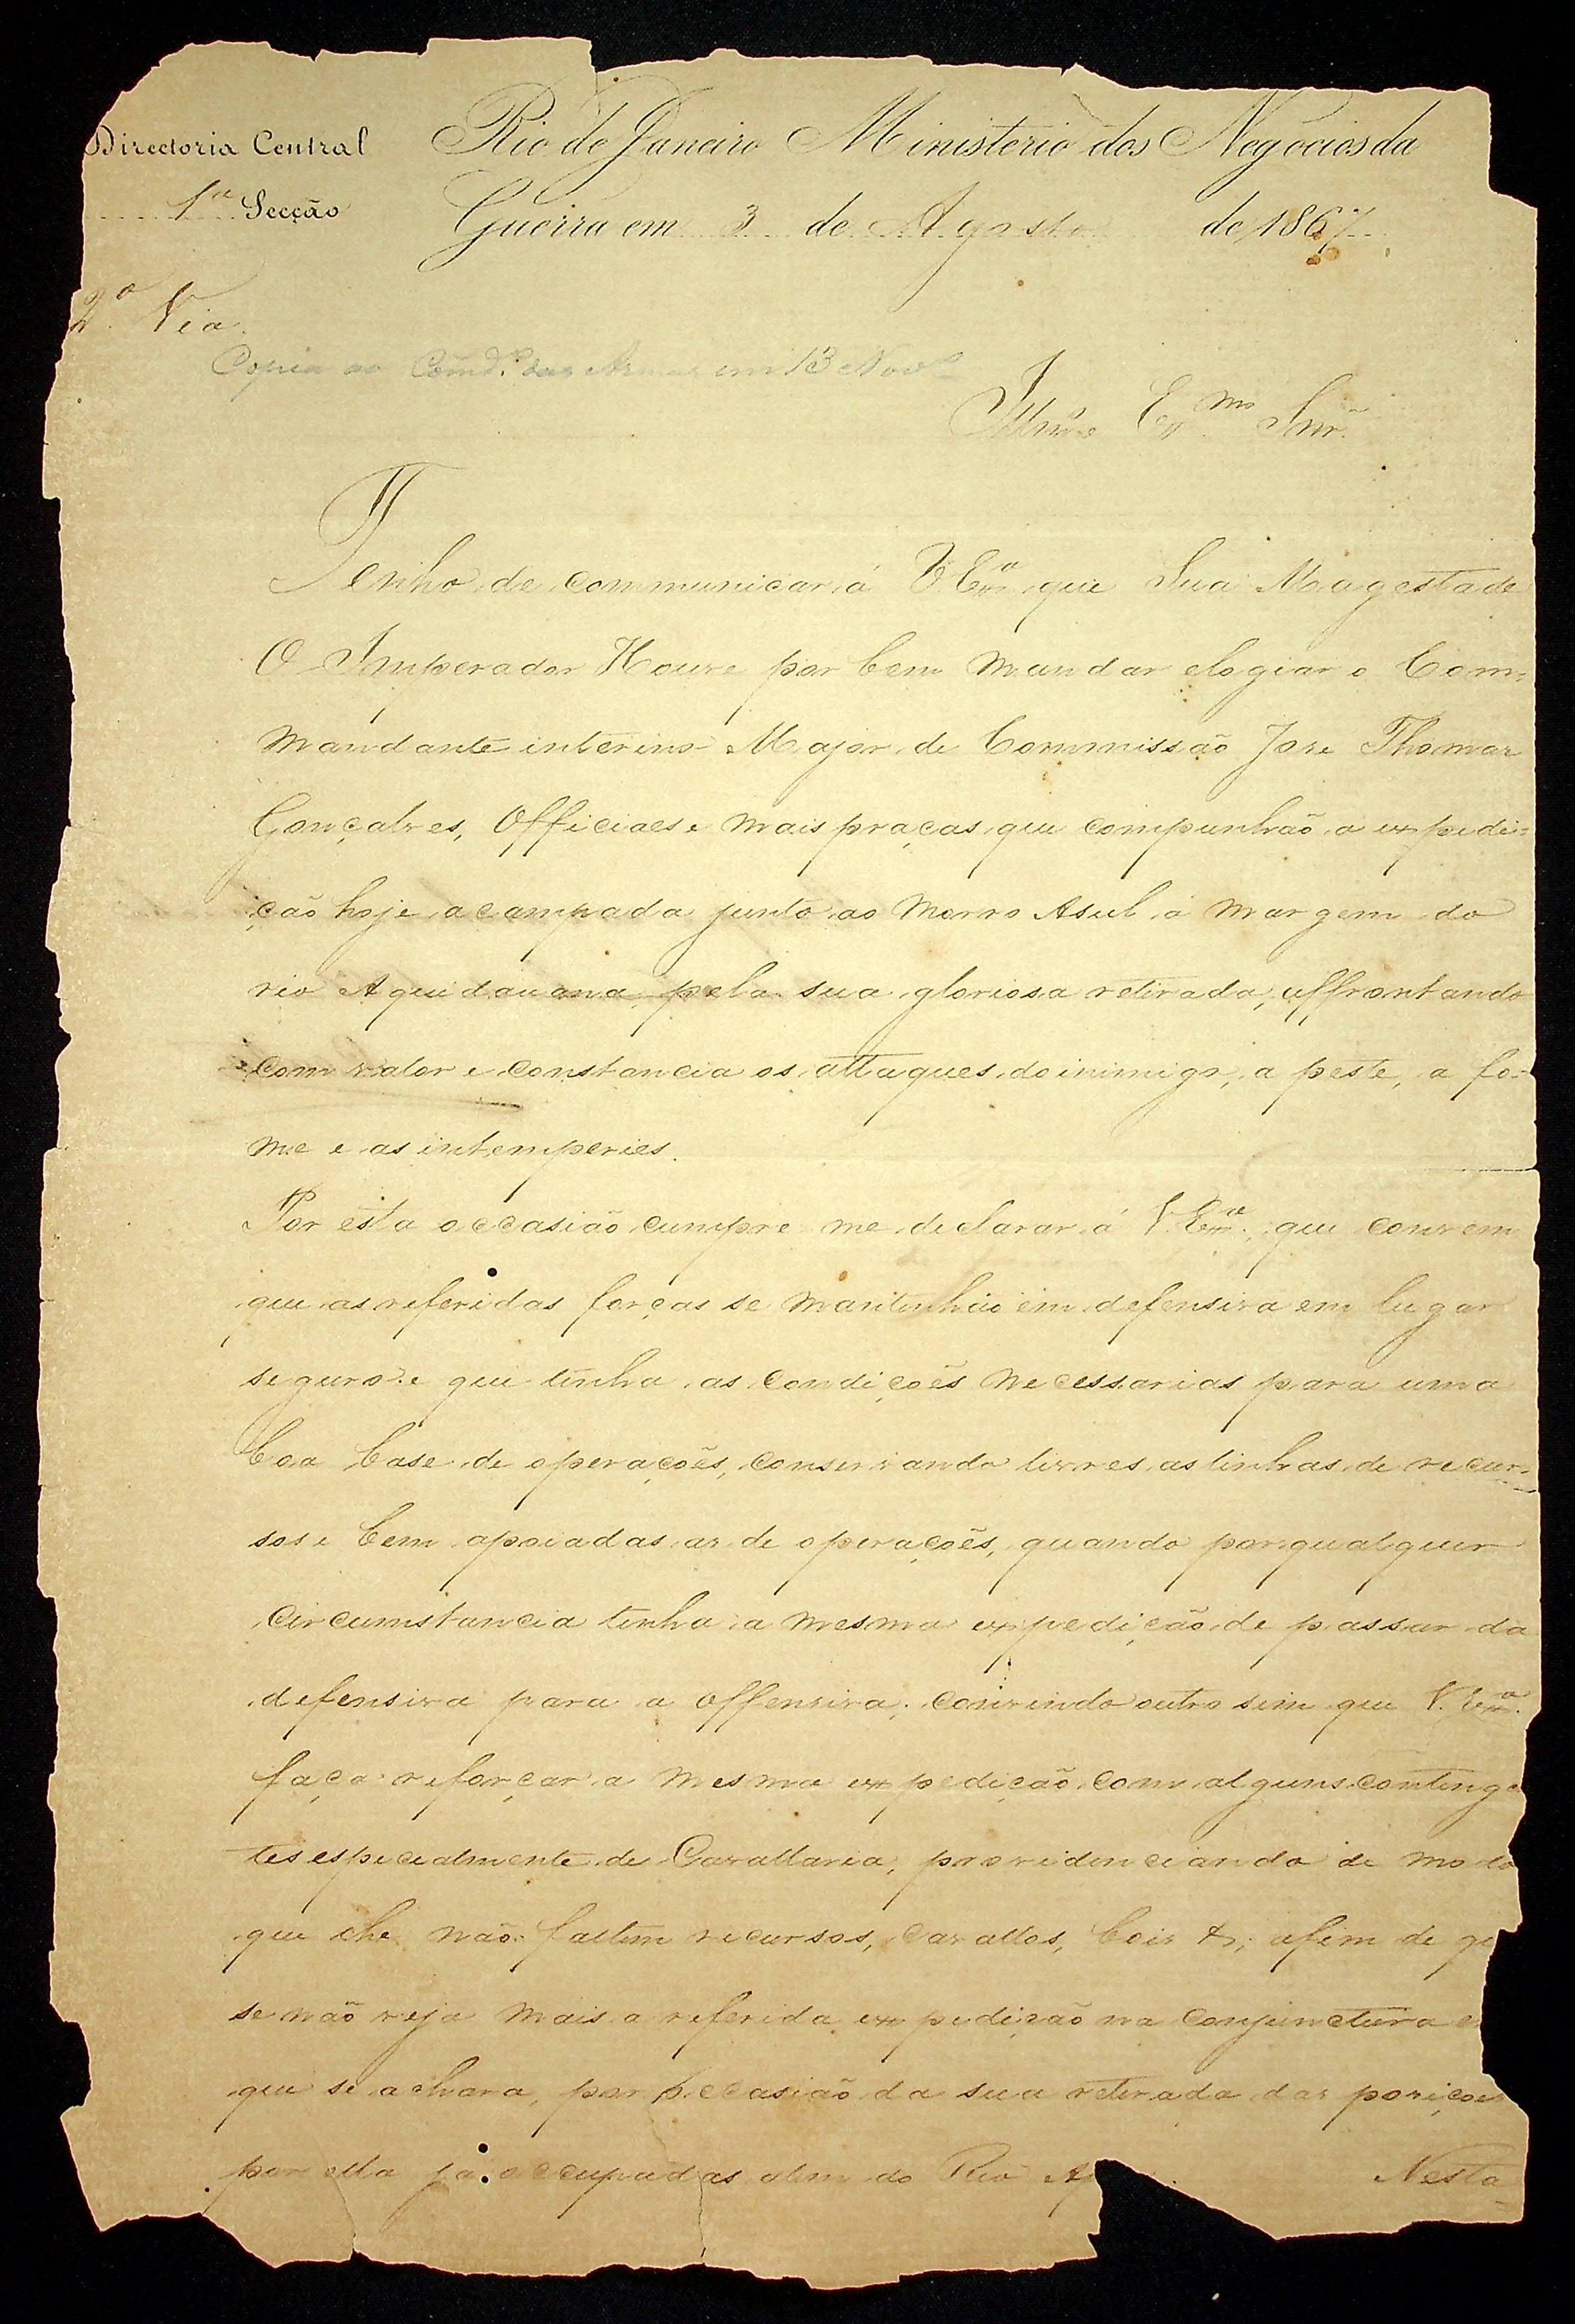 Directoria Central
1ª Secção
Rio de Janeiro Ministerio dos Negocios da
Guerra em 3 de Agosto de 1867
2ª Via.
Copia ao Comdº das Armas em 13 Novº
Illmo e Exmo Snr.
Tenho de communicar á V. Exª que Sua Magestade
O Imperador Houve por bem mandar elogiar o Com-
mandante interino Major de Commissão José Thomaz
Gonçalves, Officiaes e mais praças que compunhão a expedi-
ção hoje acampada junto ao Morro Asul á margem do
rio Aquidauana pela sua gloriosa retirada, affrontando
com valor e constancia os attaques do inimigo, a peste, a fo-
me e as intemperies.
Por esta occasião cumpre me declarar á V. Exª., que convem
que as referidas forças se mantenhão em defensiva em lugar
seguro e que tenha as condições necessarias para uma
boa base de operações, conservando livres as linhas de recur-
sos e bem apoiadas as de operações, quando por qualquer
circumstancia tenha a mesma expedição de passar da
defensiva para a offensiva; convindo outro sim que V. Exª.
faça reforçar a mesma expedição com alguns continge
tes especialmente de Cavallaria, providenciando de modo
que lhe não faltem recursos, cavallos, bois &; afim de q
se não veja mais a referida expedição na conjunctura e
que se achara, por occasião da sua retirada das posições
por ella já occupadas alem do Rio Ap Nesta